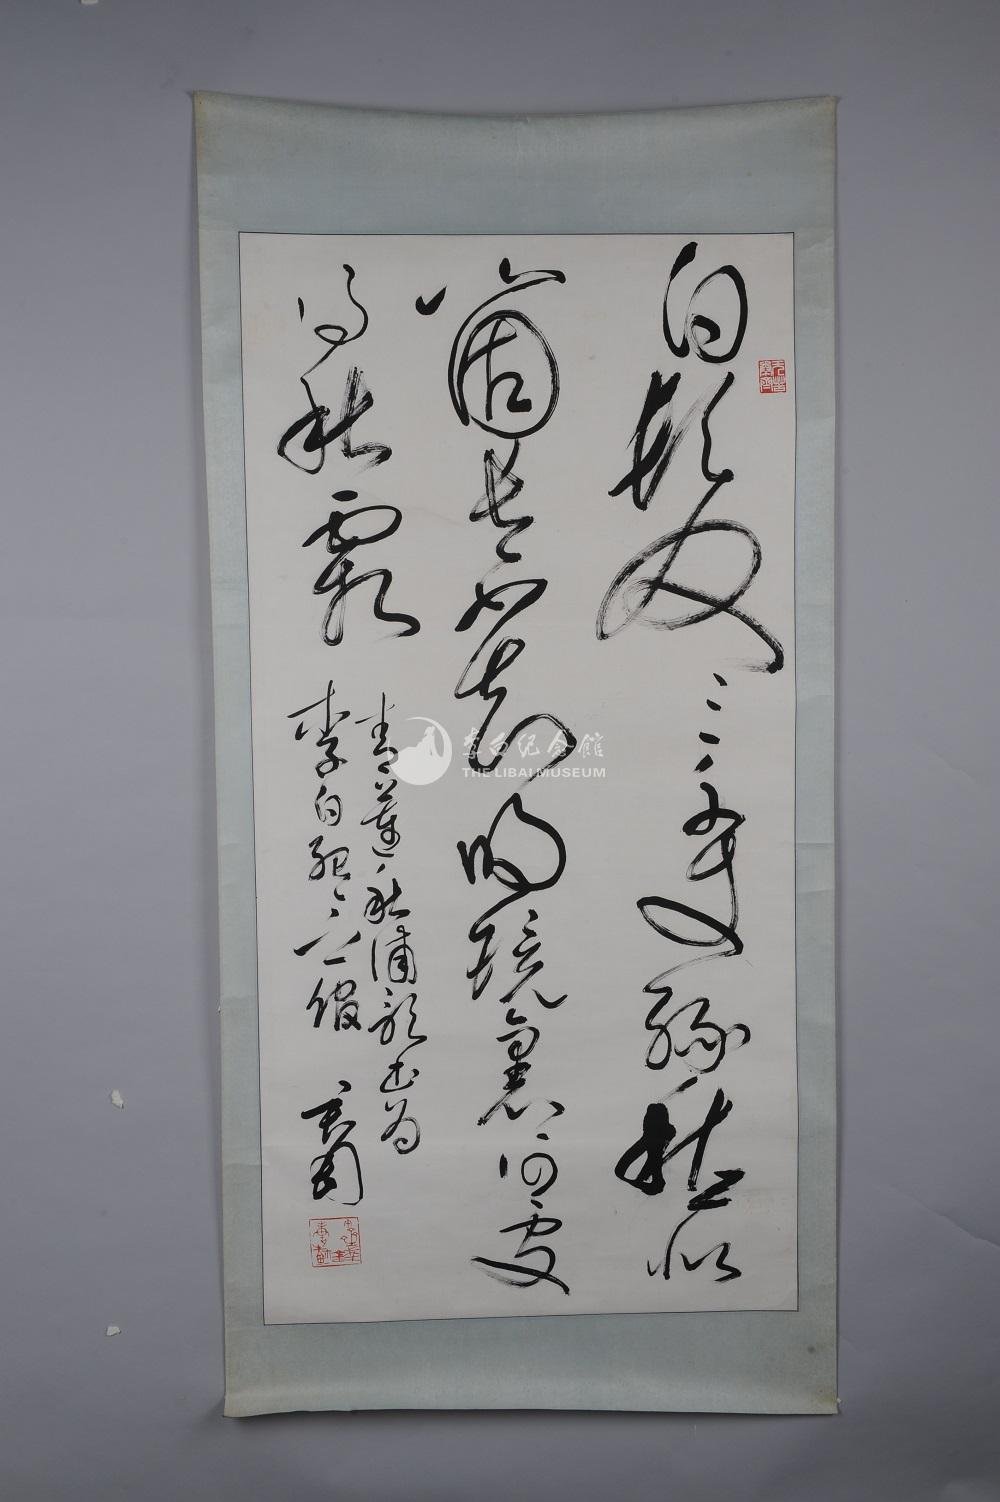 白髮三千丈緣愁似
箇長不知明鏡裏何處
得秋霜
青蓮秋浦歌书为
李白紀念館
李白纪念馆
THE LIBAI MUSEUM